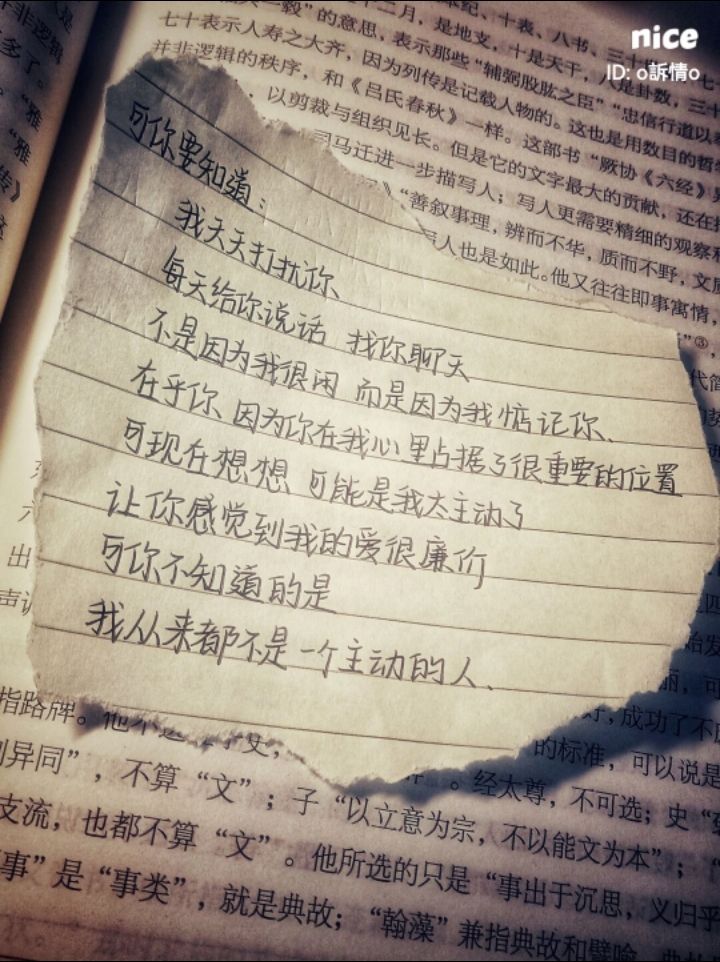 nice
ID: o訴情o
十二月，是地支，十是天干，八是卦数，三十
七十表示人寿之大齐，因为列传是记载人物的。这也是用数目的哲
并非逻辑的秩序，和《吕氏春秋》一样。这部书“厥协《六经》
，以剪裁与组织见长。但是它的文字最大的贡献，还在
司马迁进一步描写人；写人更需要精细的观察和
“善叙事理，辨而不华，质而不野，文
人也是如此。他又往往即事寓情，
可你要知道：
我天天打扰你、
每天给你说话 找你聊天
不是因为我很闲 而是因为我惦记你、
在乎你、因为你在我心里占据了很重要的位置
可现在想想 可能是我太主动了
让你感觉到我的爱很廉价
可你不知道的是
我从来都不是一个主动的人、
指路牌。他
的标准，可以说是
别异同”，不算“文”；子“以立意为宗，不以能文为本”；
。经太尊，不可选；史
支流，也都不算“文”。他所选的只是“事出于沉思，义归乎
事”是“事类”，就是典故；“翰藻”兼指典故和譬喻。